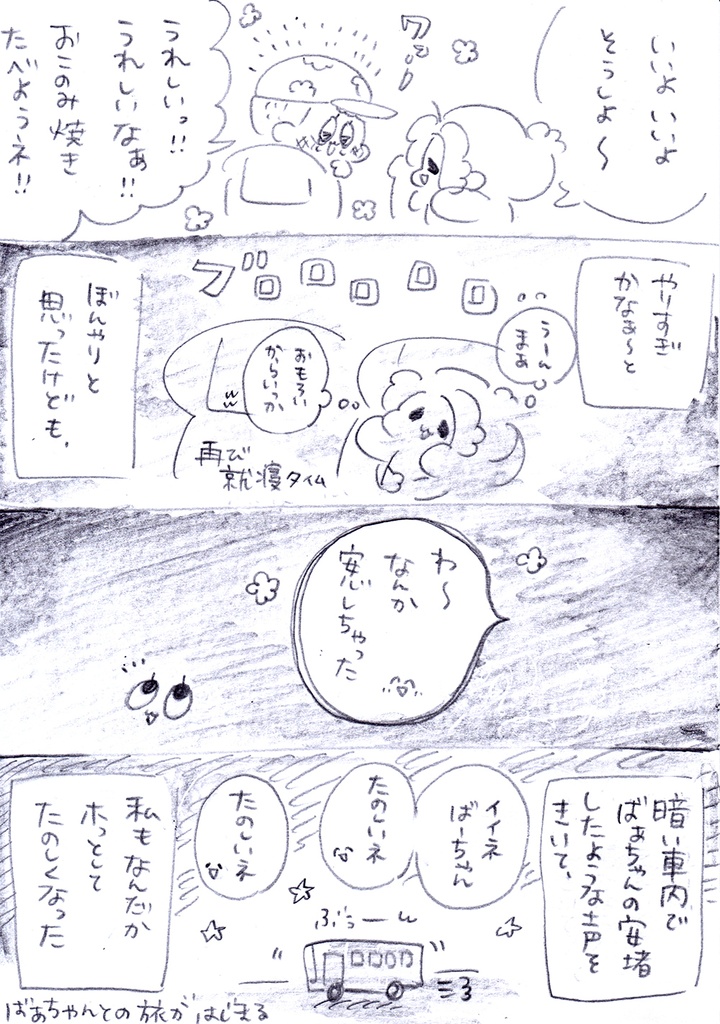 いいよ いいよ
そうしよ〜
ワァーー
うれしいっ!!
うれしいなぁ!!
おこのみ焼き
たべようネ!!
やりすぎ
かなぁ〜と
うーん
まぁ
ブロロロロロ
おもろい
からいっか
ww
再び
就寝タイム
ぼんやりと
思ったけども、
わ〜
なんか
安心しちゃった
暗い車内で
ばぁちゃんの安堵
したような声を
きいて、
イイネ
ばーちゃん
たのしいネ
たのしいネ
ぶぅーん
私もなんだか
ホっとして
たのしくなった
ばあちゃんとの旅がはじまる